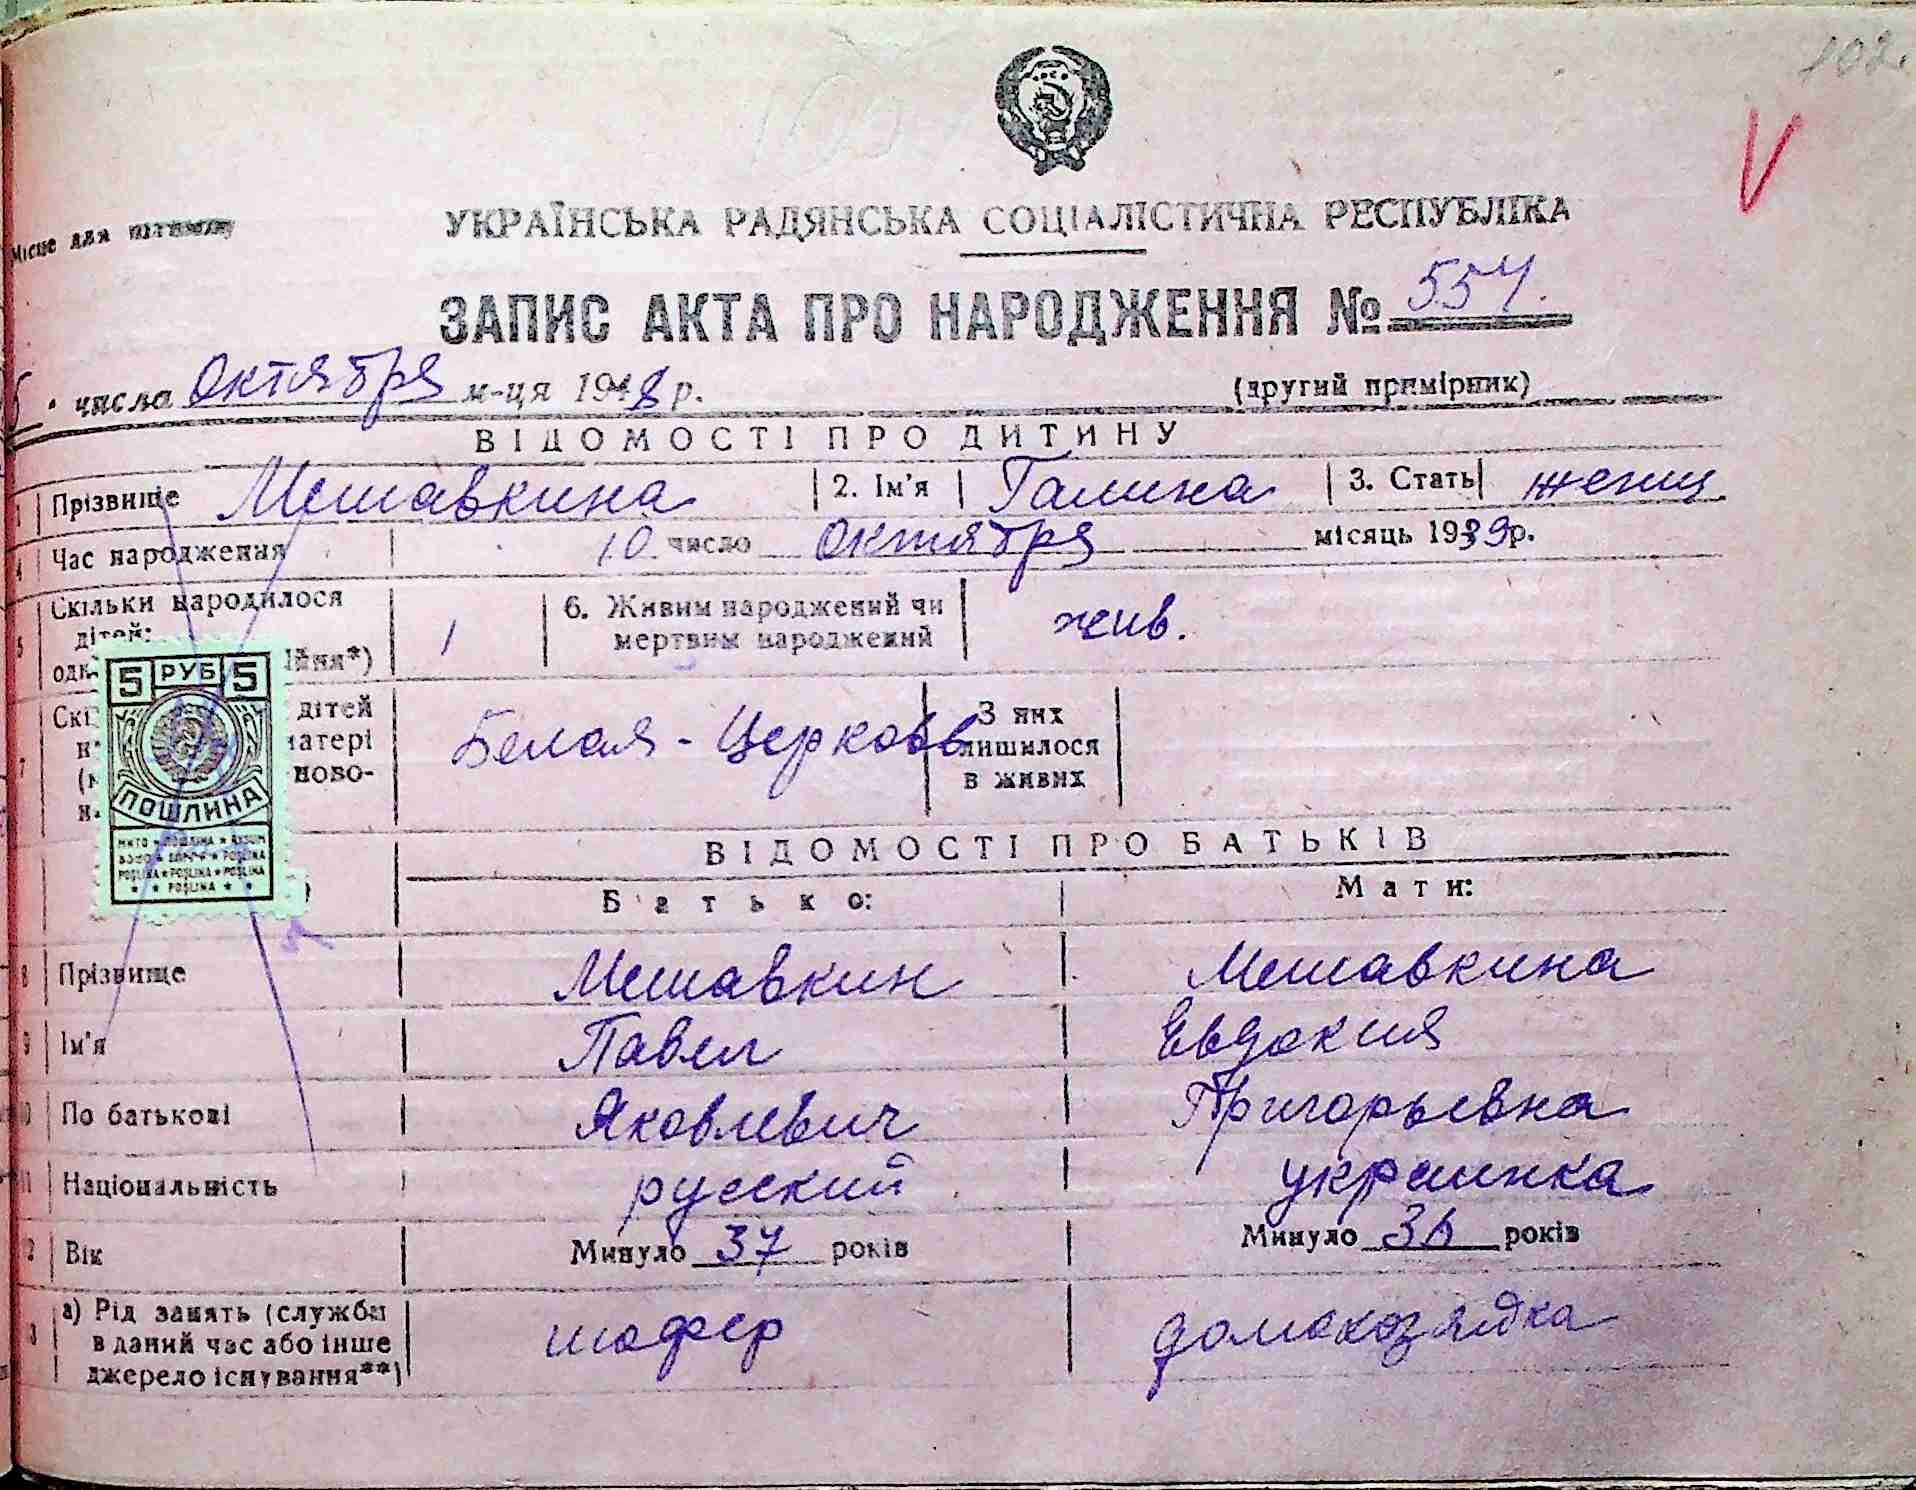 102.
Місце для штампу
УКРАЇНСЬКА РАДЯНСЬКА СОЦІАЛІСТИЧНА РЕСПУБЛІКА
ЗАПИС АКТА ПРО НАРОДЖЕННЯ № 557.
числа Октября м-ця 1948 р. (другий примірник)
ВІДОМОСТІ ПРО ДИТИНУ
1 Прізвище Мешавкина 2. Ім'я Галина 3. Стать женщ.
4 Час народження 10 число Октября місяць 1939 р.
5 Скільки народилося дітей: 1 6. Живим народжений чи мертвим народжений жив.
7 дітей матері ново- Белая-Церковь З них лишилося в живих
5 РУБ 5
ПОШЛИНА
ВІДОМОСТІ ПРО БАТЬКІВ
Батько: Мати:
8 Прізвище Мешавкин Мешавкина
9 Ім'я Павел Евдокия
10 По батькові Яковлевич Григорьевна
11 Національність русский украинка
2 Вік Минуло 37 років Минуло 36 років
3 а) Рід занять (служба в даний час або інше джерело існування**) шофер домохозяйка